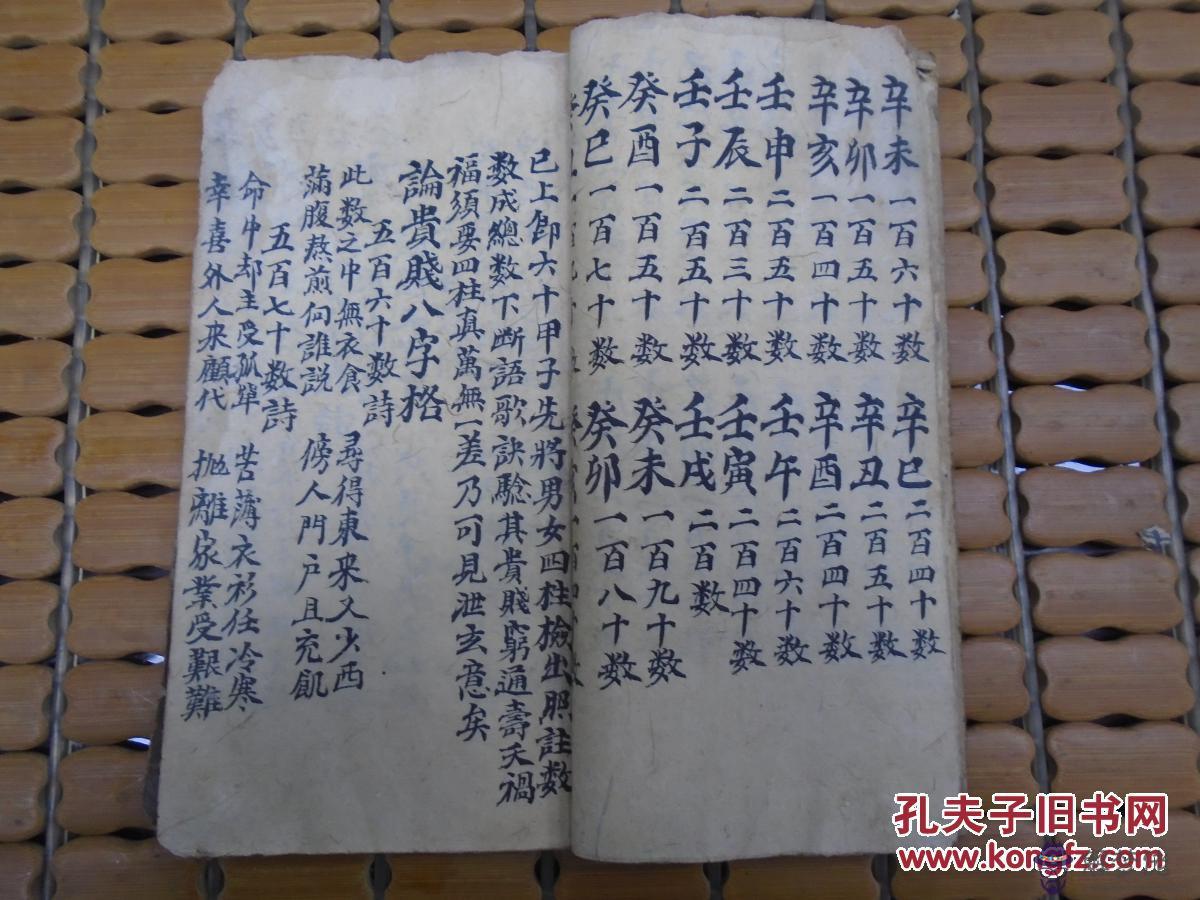 辛未 一百六十数 辛巳 二百四十数
辛卯 一百五十数 辛丑 二百五十数
辛亥 一百四十数 辛酉 二百四十数
壬申 二百五十数 壬午 二百六十数
壬辰 二百三十数 壬寅 二百四十数
壬子 二百五十数 壬戌 二百数
癸酉 一百五十数 癸未 一百九十数
癸巳 一百七十数 癸卯 一百八十数
已上即六十甲子先將男女四柱檢出照註数
数成總数下断語歌訣驗其貴賤窮通壽夭禍
福須要四柱真萬無一差乃可見泄玄意矣
論貴賤八字格
五百六十数詩
此数之中無衣食 尋得東来又少西
滿腹熬煎向誰説 傍人門戸且充飢
五百七十数詩
命中却主受孤单 苦薄衣衫任冷寒
幸喜外人来顧代 抛離家業受艱難
孔夫子旧书网
www.kongfz.com